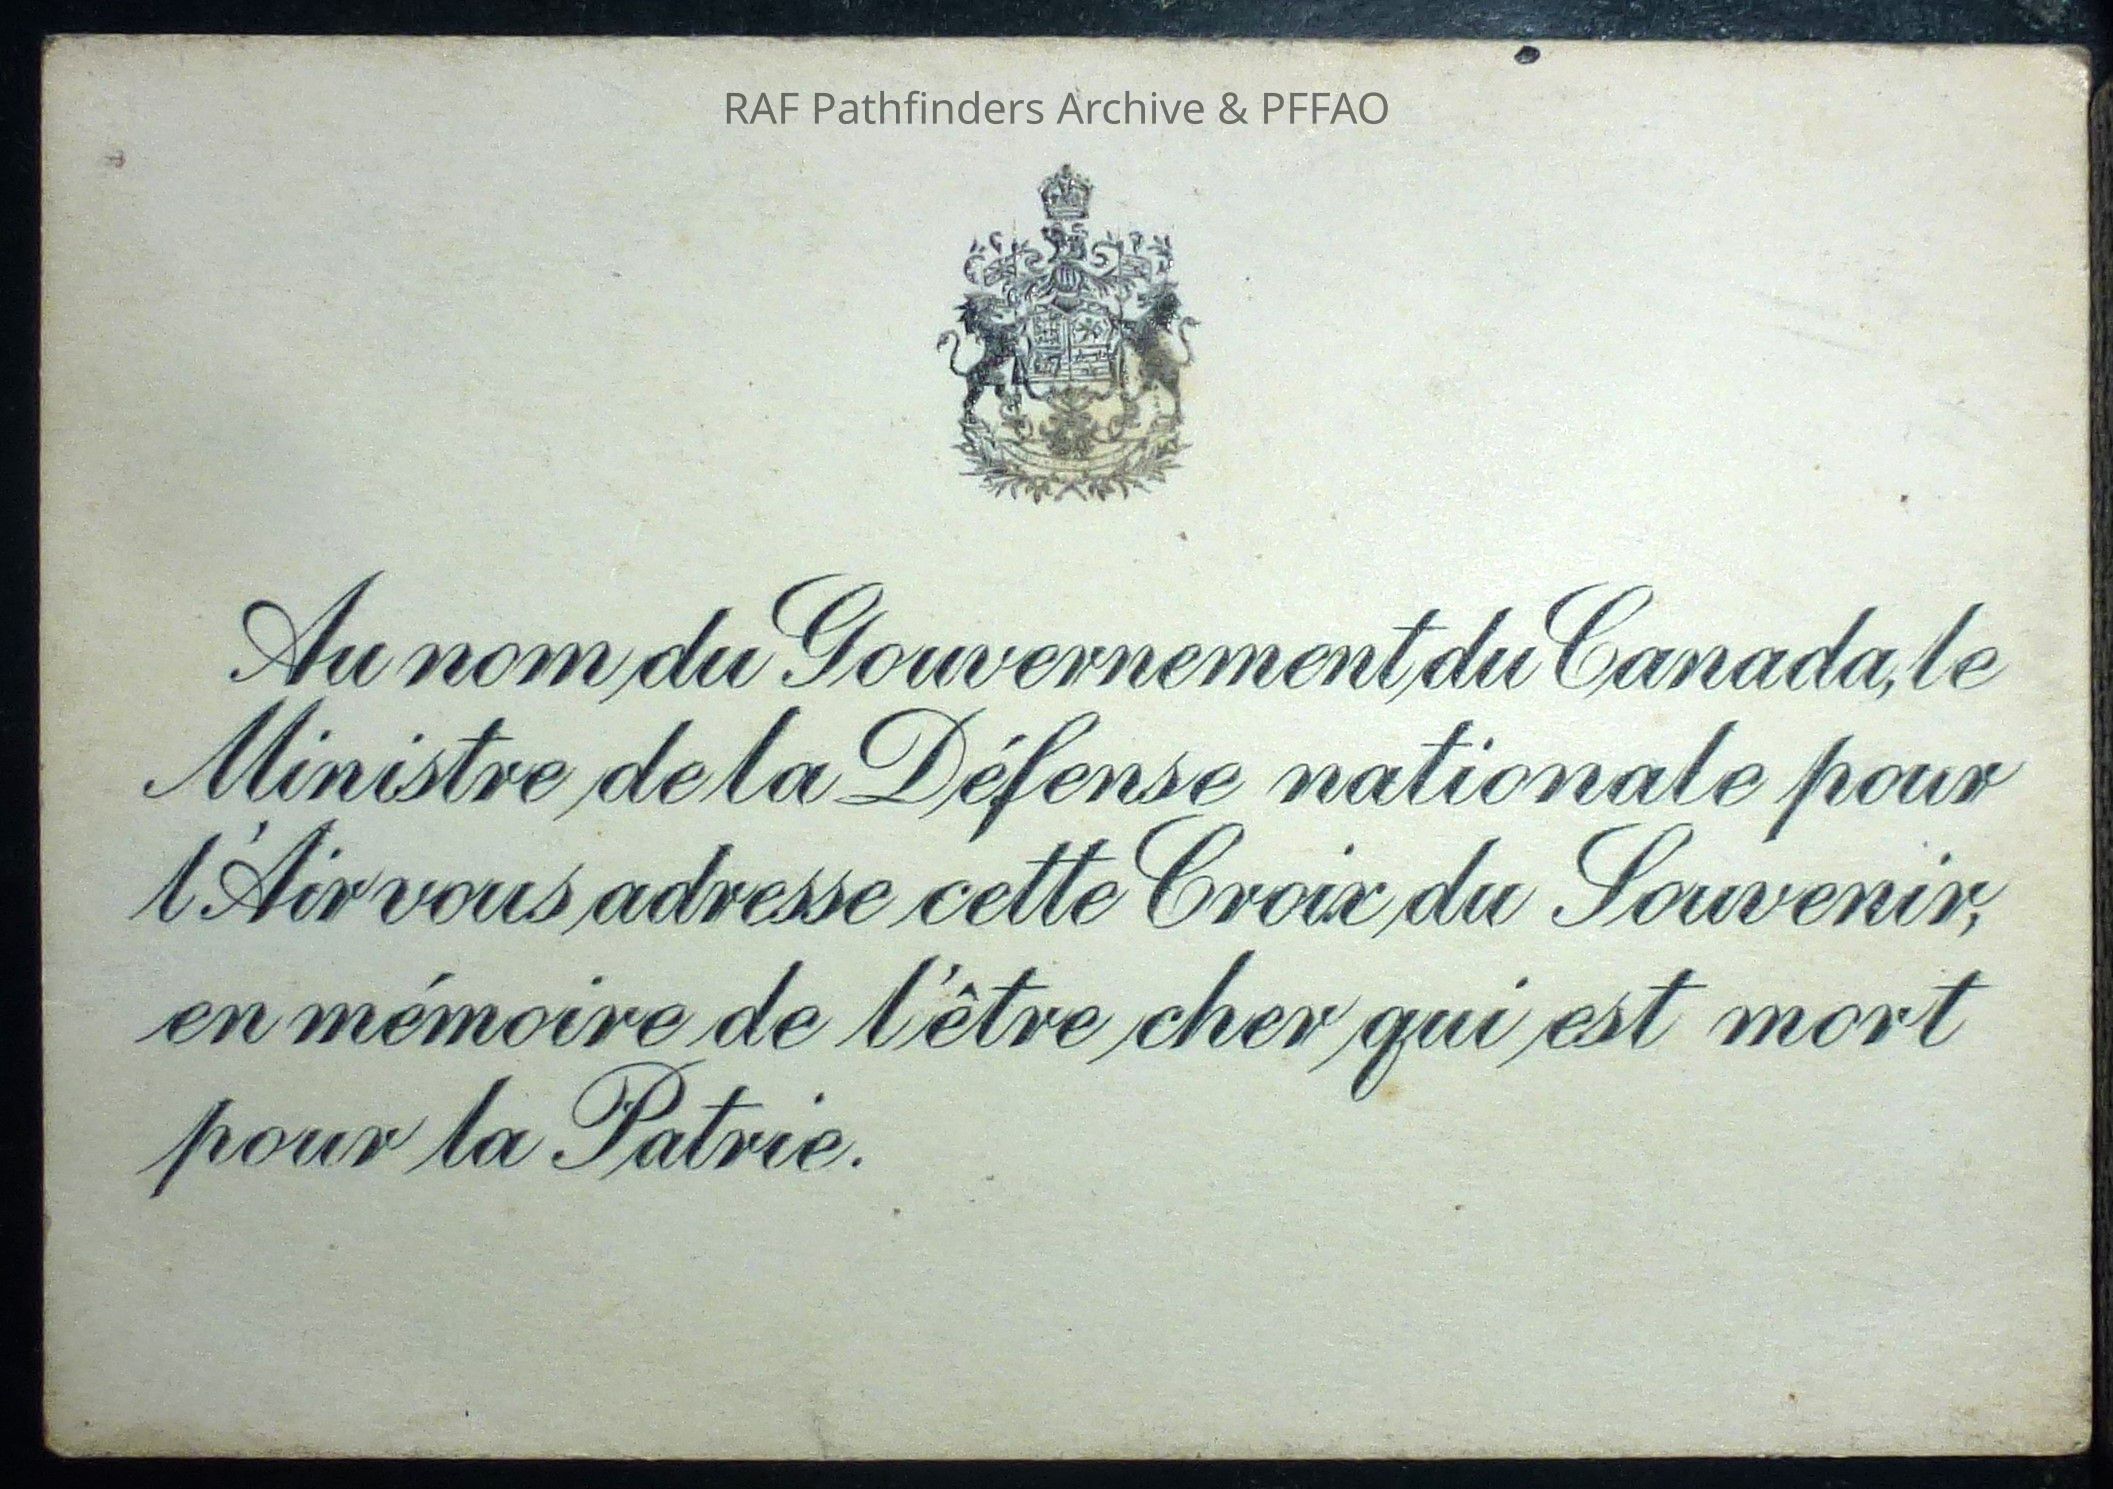 RAF Pathfinders Archive & PFFAO
Au nom du Gouvernement du Canada, le
Ministre de la Défense nationale pour
l'Air vous adresse cette Croix du Souvenir,
en mémoire de l'être cher qui est mort
pour la Patrie.